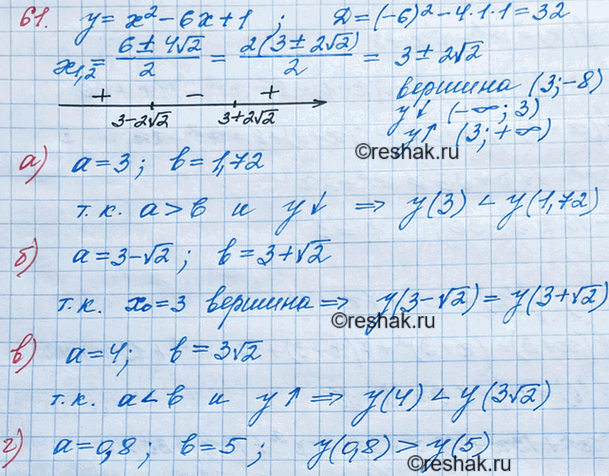 61. y = x² - 6x + 1 ; Д = (-6)² - 4·1·1 = 32
x₁,₂ = (6 ± 4√2)/2 = 2(3 ± 2√2)/2 = 3 ± 2√2
+ − +
3-2√2 3+2√2
вершина (3; -8)
y↓ (-∞; 3)
y↑ (3; +∞)
©reshak.ru
а) a = 3 ; b = 1,72
т.к. a > b и y↓ ⇒ y(3) < y(1,72)
б) a = 3-√2 ; b = 3+√2
т.к. x₀ = 3 вершина ⇒ y(3-√2) = y(3+√2)
©reshak.ru
в) a = 4; b = 3√2
т.к. a < b и y↑ ⇒ y(4) < y(3√2)
г) a = 0,8 ; b = 5 ; y(0,8) > y(5)
©reshak.ru